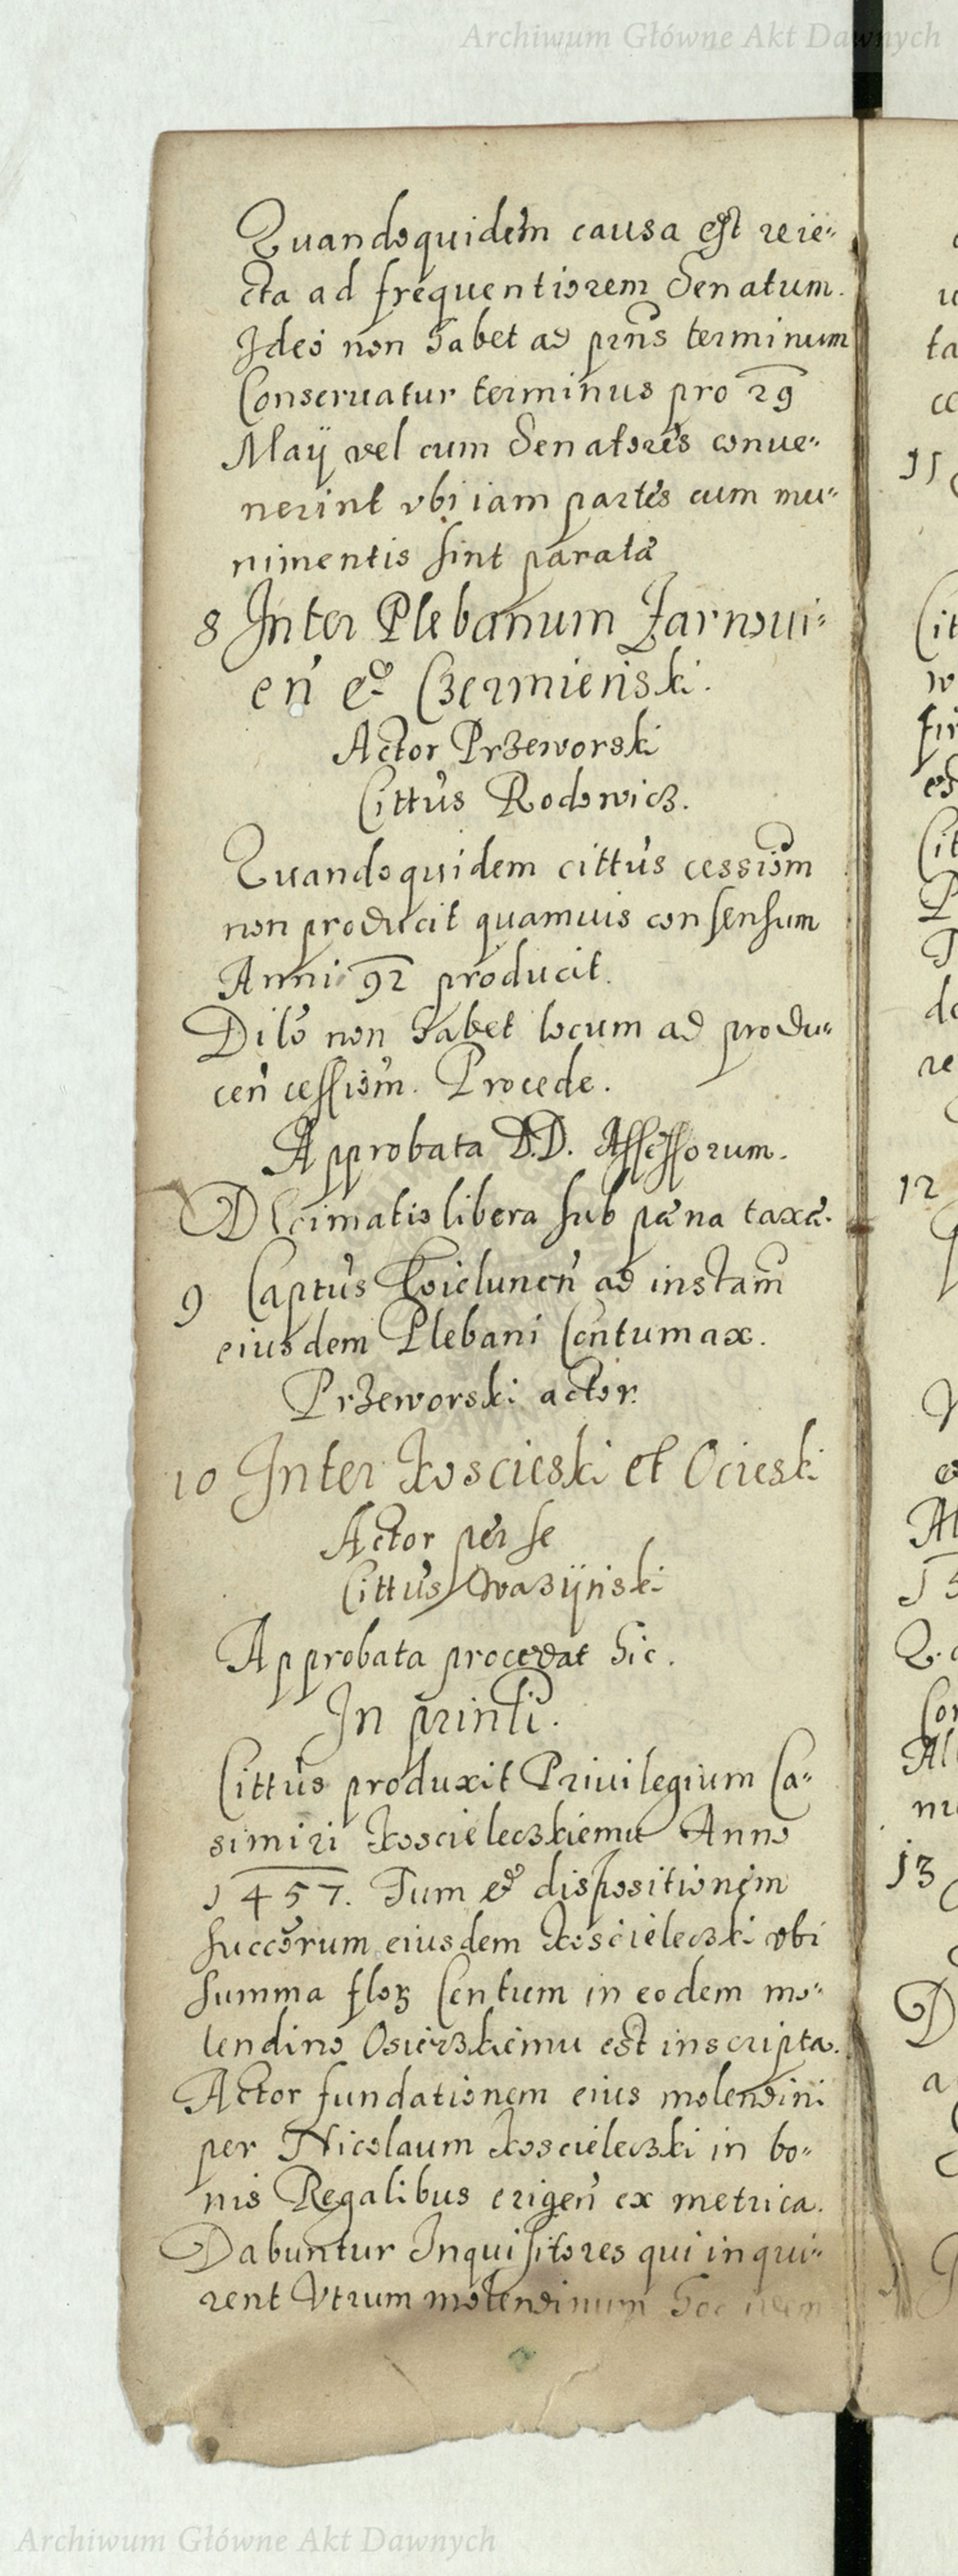 Archiwum Główne Akt Dawnych
Quandoquidem causa est reie-
cta ad frequentiorem Senatum.
Ideo non habet ad prns terminum
Conseruatur terminus pro 29
Maij vel cum Senatores conue-
nerint vbi iam partes cum mu-
nimentis sint parata
8 Inter Plebanum Zarnoui-
en et Czermieński.
Actor Przeworski
Cittus Rodowicz.
Quandoquidem cittus cessiom
non producit quamuis consensum
Anni 92 producit.
Dilo non habet locum ad produ-
cen cessiom. Procede.
Approbata D.D. Assessorum.
Decimatio libera sub pæna taxæ.
9 Captus Wielunen ad instam
eiusdem Plebani Contumax.
Przeworski actor.
10 Inter Koscieski et Ocieski
Actor per se
Cittus Wazÿnski
Approbata procedat hic.
In printi.
Cittus produxit Priuilegium Ca-
simiri Koscieleczkiemu Anno
1457. Tum et dispositionem
succorum eiusdem Koscieleczki vbi
summa florz Centum in eodem mo-
lendino Osierzkiemu est inscripta.
Actor fundationem eius molendini
per Nicolaum Koscieleczki in bo-
nis Regalibus erigen ex metrica.
Dabuntur Inquisitores qui inqui-
rent Vtrum molendinum hoc idem
11
12
13
Archiwum Główne Akt Dawnych